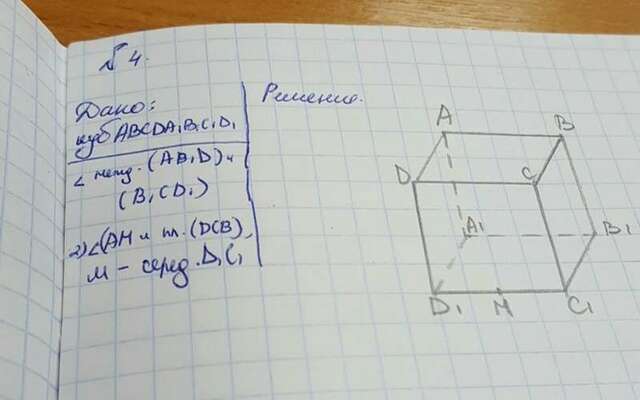 № 4.
Дано:
куб ABCDA₁B₁C₁D₁
∠ межд. (AB₁D) и
(B₁CD₁)
2) ∠(AM и пл. (DCB),
M – серед. D₁C₁
Решение.
A
B
D
C
A₁
B₁
D₁
M
C₁